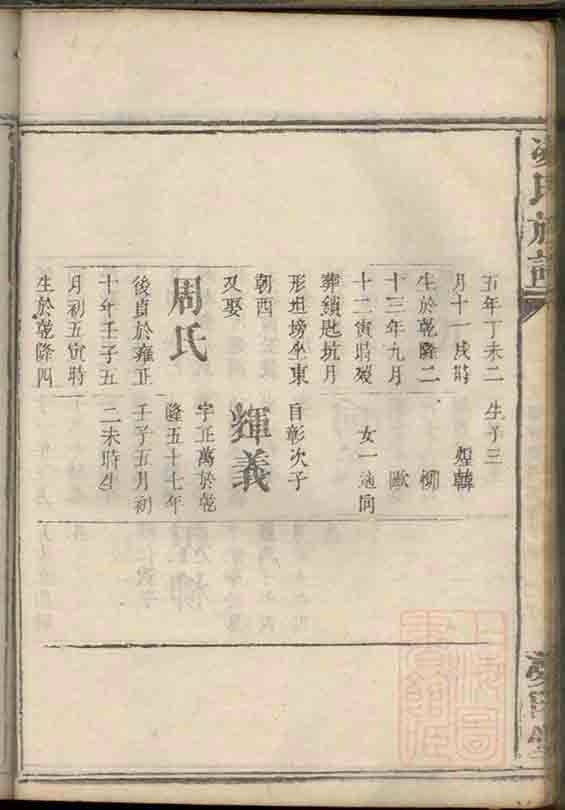 氏族譜
五年丁未二
月十一戌時
生於乾隆二
十三年九月
十二寅時歿
葬鎖匙坑月
形坦塝坐東
朝酉
又娶
周氏
後貞於雍正
十年壬子五
月初五寅時
生於乾隆四
生子三
煌韓
柳
歐
女一適同
自彰次子
輝義
字正萬於乾
隆五十七年
壬子五月初
二未時生
堂
上海圖
書館藏